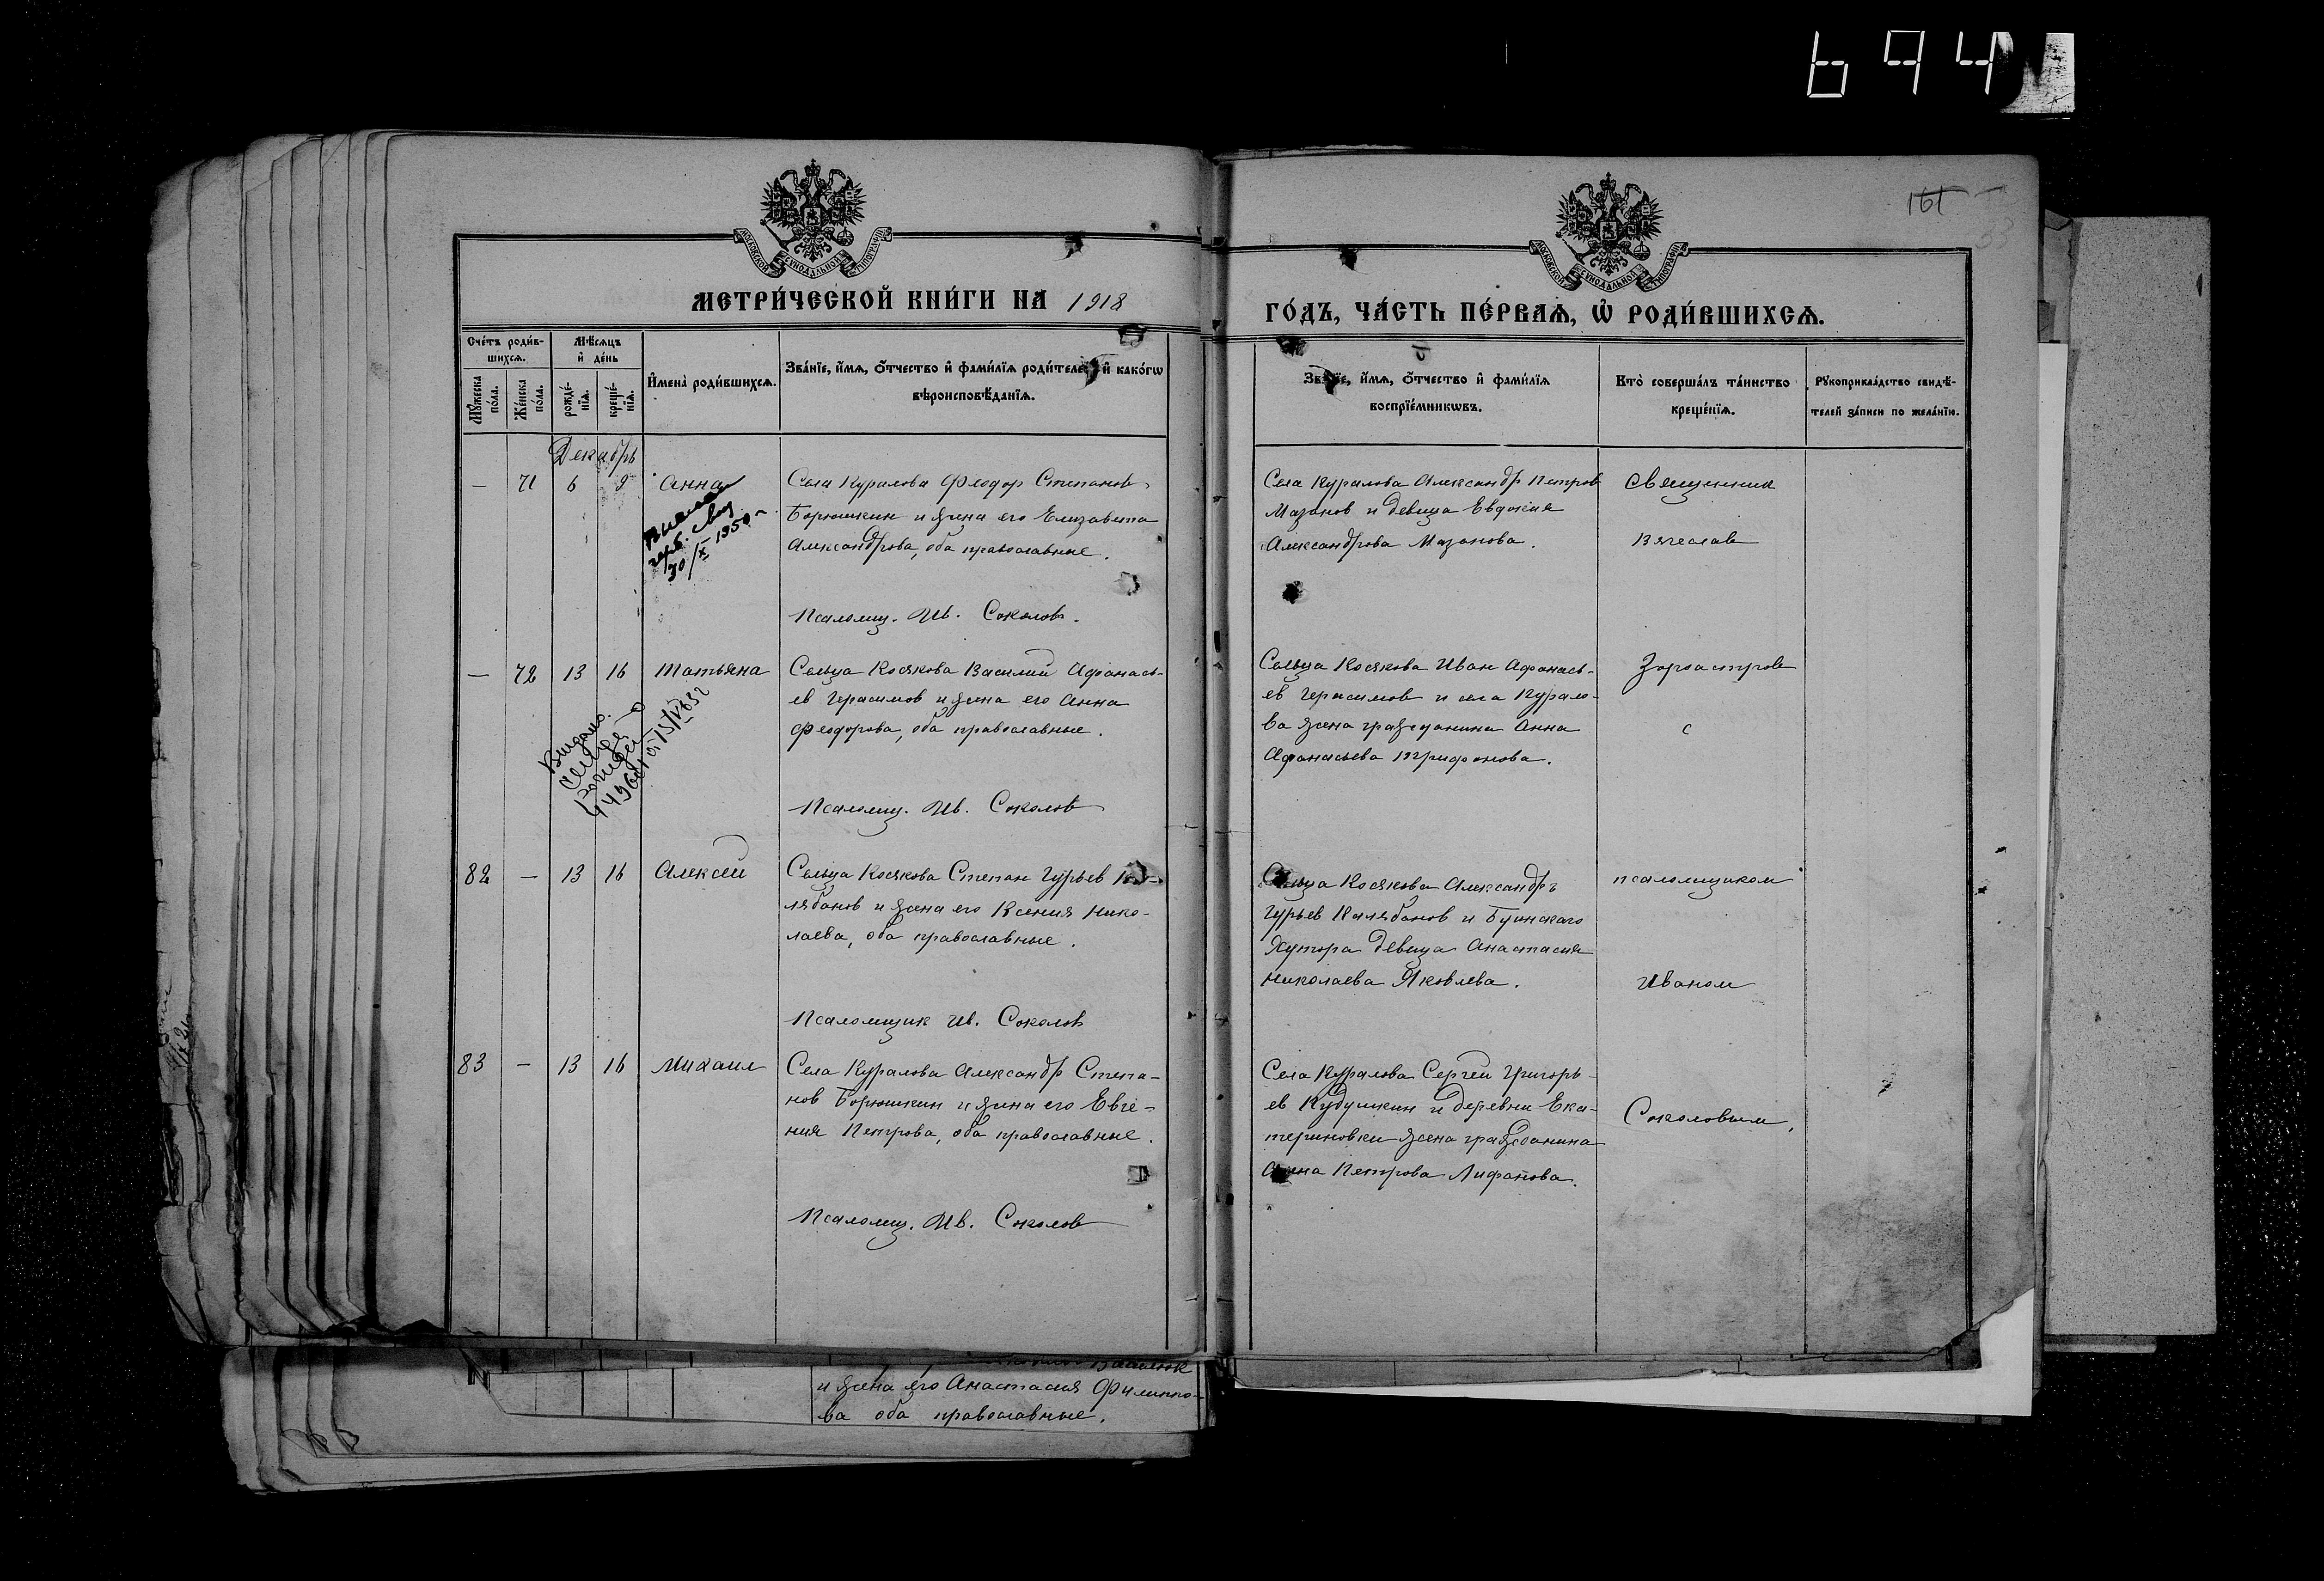 694
161
33
МОСКОВСКОЙ СѴНОДАЛЬНОЙ ТИПОГРАФІИ
МОСКОВСКОЙ СѴНОДАЛЬНОЙ ТИПОГРАФІИ
МЕТРИ́ЧЕСКОЙ КНИ́ГИ НА 1918
ГО́ДЪ, ЧА́СТЬ ПЕ́РВАѦ, Ѡ҆ РОДИ́ВШИХСѦ.
Сче́тъ роди́в-
шихсѧ.
Мꙋ́жеска
по́ла.
Же́нска
по́ла.
Мѣ́сѧцъ
и҆ де́нь
рожде́-
нїѧ.
креще́-
нїѧ.
И҆мена̀ роди́вшихсѧ.
Зва́нїе, и҆́мѧ, ѻ҆́тчество и҆ фами́лїѧ роди́телей, и҆ како́гѡ
вѣроисповѣ́данїѧ.
Зва́нїе, и҆́мѧ, ѻ҆́тчество и҆ фами́лїѧ
воспрїе́мникѡвъ.
Кто̀ соверша́лъ та́инство
креще́нїѧ.
Рꙋкоприкла́дство свидѣ́-
телей за́писи по жела́нїю.
Декабрь
— 71 6 9 Анна
Села Куралова Феодор Степанов
Борюшкин и жена его Елизавета
Александрова, оба православные.
Псаломщ. Ив. Соколов.
30/X 1950 г
Села Куралова Александр Петров
Мазанов и девица Евдокия
Александрова Мазанова.
Священник
Вячеслав
— 72 13 16 Татьяна
Сельца Косякова Василий Афанась-
ев Герасимов и жена его Анна
Феодорова, оба православные.
Псаломщ. Ив. Соколов
Выдано
Сельца Косякова Иван Афанась-
ев Герасимов и села Курало-
ва жена гражданина Анна
Афанасьева Трифонова.
Зороастров
с
82 — 13 16 Алексей
Сельца Косякова Степан Гурьев Ка-
лябанов и жена его Ксения Нико-
лаева, оба православные.
Псаломщик Ив. Соколов
Сельца Косякова Александръ
Гурьев Калябанов и Буинскаго
Хутора девица Анастасия
Николаева Яковлева.
псаломщиком
Иваном
83 — 13 16 Михаил
Села Куралова Александр Степа-
нов Борюшкин и жена его Евге-
ния Петрова, оба православные.
Псаломщ. Ив. Соколов
Села Куралова Сергей Григорь-
ев Кудушкин и деревни Ека-
териновки жена гражданина
Анна Петрова Лифанова.
Соколовым,
и жена его Анастасия Филиппо-
ва оба православные.